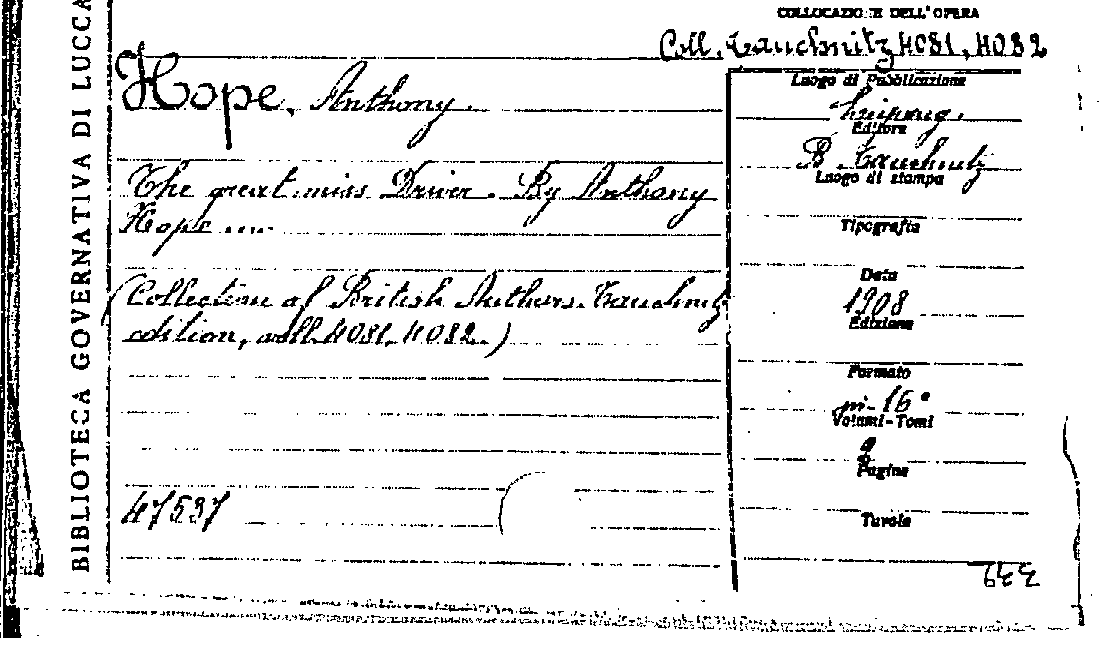 BIBLIOTECA GOVERNATIVA DI LUCCA
COLLOCAZIONE DELL'OPERA
Coll. Tauchnitz 4081, 4082
Hope, Anthony.
The great miss Driver. By Anthony
Hope ....
(Collection of British Authors. Tauchnitz
edition, voll. 4081, 4082.)
47537
Luogo di Pubblicazione
Leipzig.
Editore
B. Tauchnitz
Luogo di stampa
Tipografia
Data
1908
Edizione
Formato
in-16°
Volumi-Tomi
2
Pagine
Tavole